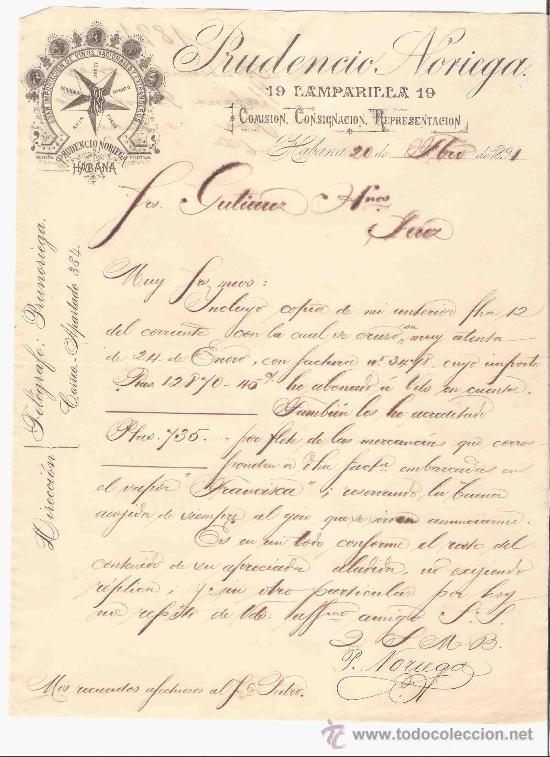 Prudencio Noriega.
19 LAMPARILLA 19
COMISION, CONSIGNACION, REPRESENTACION
Habana 20 de Fbro de 1891
GRAN IMPORTACION DE VINOS NACIONALES Y EXTRANJEROS
PRUDENCIO NORIEGA
HABANA
MARCA
Dirección
Telégrafo: Prunoriega.
Correo: Apartado 384.
Srs. Gutierrez Hnos
Jerez
Muy Srs mios:
Incluyo copia de mi anterior fha 12
del corriente con la cual se cruzó su muy atenta
de 24 de Enero, con factura nº 3478, cuyo importe
Ptas. 12870-45 he abonado á Vds en cuenta.
Tambien les he acreditado
Ptas. 735. por flete de las mercancias que corres
ponden á dha fact.ª embarcadas en
el vapor "Francisca"; reservando la buena
acojida de siempre al giro que se sirvan anunciarme.
Es en un todo conforme el resto del
contenido de su apreciada aludida, no exijiendo
réplica; y sin otro particular por hoy
me repito de Vds. affmo amigo S. S.
Q S M B
P. Noriega
Mis recuerdos afectuosos al Sr Dn Pedro.
todocoleccion.net